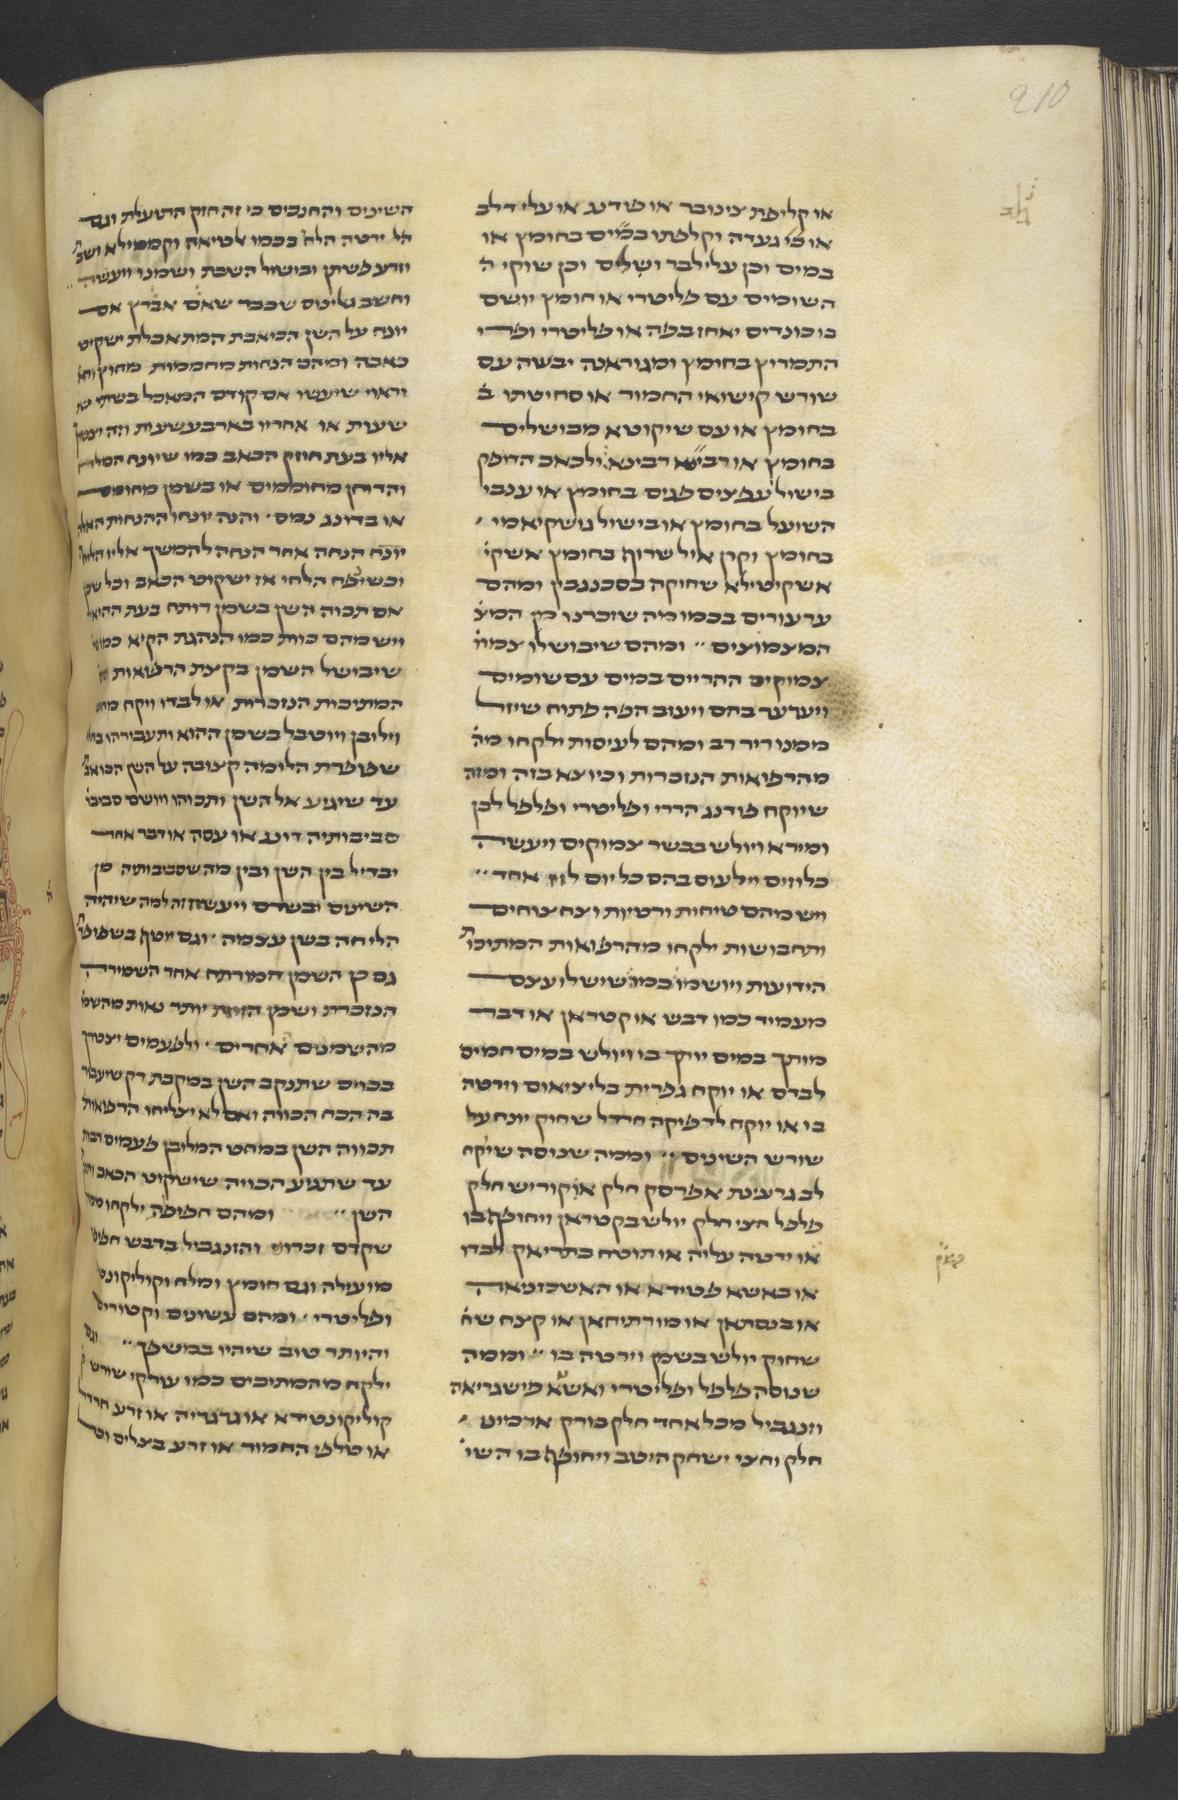 210
או קליפת צינובר או פודנג או עלי דלב
או מי געדה וקלפתו במים בחומץ או
במים וכן עלי לבר ושלים וכן שוקי ה
השומים עם פליטרי או חומץ יושם
בו כונדיס יאחז בפה או פליטרי ופרי
התמריץ בחומץ ומגוראנה יבשה עם
שורש קישואי החמור או סחיטתו ב
בחומץ או עם שיקוטא מבושלים
בחומץ או רביא רבינא ולכאב הדופק
בישול עפצים פגים בחומץ או ענבי
השועל בחומץ או בישול גושקיאמי
בחומץ וקרן איל שרוף בחומץ אשקי
אשקיטילא שחוקה בסכנגבין ומהם
ערעורים בכמו מה שזכרנו מן המצ
המצמוצים ומהם שיבושלו צמוו
צמוקים ההריים במים עם שומים
ויערער בהם ויעזב הפה פתוח שיזל
ממנו ריר רב ומהם לעיסות ילקחו מה
מהרפואות הנזכרות וכיוצא בזה ומזה
שיוקח פודנג הררי ופליטרי ופלפל לבן
ומירא ויולש בבשר צמוקים ויעשה
כלוזים וילעוס בהם כל יום לוז אחד
ויש מהם טיחות ורטיות וצחצוחים
ותחבושות ילקחו מהרפואות המתיכות
הידועות ויושמו כמו שיש לו עצם
מעמיד כמו דבש או קטראן או דבר
מותך במים יותך בו ויולש במים חמים
לבדם או יוקח גפרית בלי ציאום וירטה
בו או יוקח לדפיקה חרדל שחוק יונח על
שורש השינים וממה שנוסה שיקח
לב גרעינת אפרסק חלק אוקוריש חלק
פלפל חצי חלק יולש בקטראן ויחופף בו
או ירטה עליה או תוטח בתריאק לבדו
או באשא פטידא או האשכזנאיה
או בנסתאן או מורתיחאן או קצח שח
שחוק יולש בשמן וירטה בו וממה
שנוסה פלפל ופליטרי ואשא פישגריאה
וזנגביל מכל אחד חלק בורק ארמיט
חלק וחצי ישחק היטב ויחופף בו השי
השינים והחנכים כי זה חזק התועלת וגם
הל ירטה הלח בכמו אלטיאה וקממילא ושב
וזרע פשתן ובישול השבת ושמנו ויעשה
וחשב גאלינוס שכבר שאם אברץ אם
יונח על השן הכואבת המתאכלת ישקיט
כאבה ומהם הנחות מחממות מחוץ
וראוי שיעשו אם קודם המאכל בשתי
שעות או אחריו בארבע שעות וזה יצטרך
אליו בעת חוזק הכאב כמו שיונח המלח
והדוחן מחוממים או בשמן מחומם
או בדונג נמס והנה יונחו ההנחות האלה
יונח הנחה אחר הנחה להמשך אליו הליחה
וכשיפח הלחי אז ישקוט הכאב וכל שכן
אם תכוה השן בשמן רותח בעת ההיא
ויש מהם כוות כמו הנהגת הקיא כמו
שיבושל השמן בקצת הרפואות
המתיכות הנזכרות או לבדו ויקח מחט
וילובן ויוטבל בשמן ההוא ותעבירהו
שפופרת הלומה קצובה על השן הכואב
עד שיגיע אל השן ותכוהו ויושם סביב
סביבותיה דונג או עסה או דבר אחר
יבדיל בין השן ובין מה שסביבותיה מן
השינים ובשרם ויעשו זה למה שיהיה
הליחה בשן עצמה וגם יוטף בשפופרת
גם כן השמן המורתח אחר השמירה
הנזכרת ושמן הזית יותר נאות מהשמ
מהשמנים אחרים ולפעמים יצטרך
בכוים שתנקב השן במקבת דק שיעבור
בה הכח הכווה ואם לא יצליחו הרפואות
תכווה השן במחט המלובן פעמים רבות
עד שתגיע הכויה שישקוט הכאב
השן ומהם חפיפה ילקחו
שקדם זכרו והזנגביל בדבש
מועילה וגם חומץ ומלח וקוליקונט
ופליטרי ומהם עשונים וקטורים
והיותר טוב שיהיו במשפך וגם
ילקח מהמתיכים כמו עורקי שורש
קוליקונטידא או גרגריה או זרע חרדל
או טלפי החמור או זרע בצלים